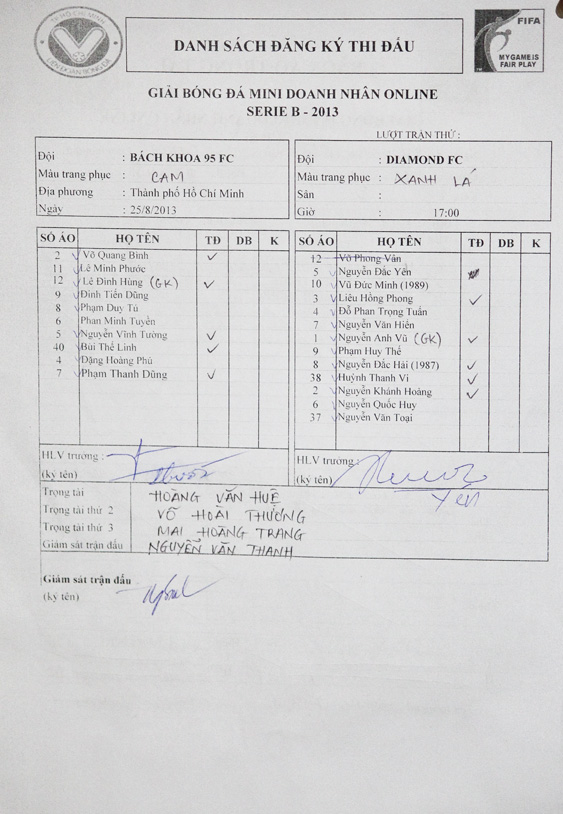 DANH SÁCH ĐĂNG KÝ THI ĐẤU
FIFA
MY GAME IS
FAIR PLAY
GIẢI BÓNG ĐÁ MINI DOANH NHÂN ONLINE
SERIE B - 2013
LƯỢT TRẬN THỨ :
Đội : BÁCH KHOA 95 FC
Màu trang phục : CAM
Địa phương : Thành phố Hồ Chí Minh
Ngày : 25/8/2013
Đội : DIAMOND FC
Màu trang phục : XANH LÁ
Sân :
Giờ : 17:00
SỐ ÁO HỌ TÊN TĐ DB K
2 Võ Quang Bình ✓
11 Lê Minh Phước
12 Lê Đình Hùng (GK) ✓
9 Đinh Tiến Dũng
8 Phạm Duy Tú
6 Phan Minh Tuyền
5 Nguyễn Vĩnh Tường ✓
40 Bùi Thế Linh ✓
4 Đặng Hoàng Phú
7 Phạm Thanh Dũng ✓
SỐ ÁO HỌ TÊN TĐ DB K
12 Võ Phong Vân
5 Nguyễn Đắc Yến
10 Vũ Đức Minh (1989)
3 Liêu Hồng Phong ✓
4 Đỗ Phan Trọng Tuấn
7 Nguyễn Văn Hiến
1 Nguyễn Anh Vũ (GK) ✓
9 Phạm Huy Thế
8 Nguyễn Đắc Hải (1987) ✓
38 Huỳnh Thanh Vi ✓
2 Nguyễn Khánh Hoàng ✓
6 Nguyễn Quốc Huy
37 Nguyễn Văn Toại
HLV trưởng :
(ký tên)
HLV trưởng :
(ký tên)
Yến
Trọng tài HOÀNG VĂN HUỆ
Trọng tài thứ 2 VÕ HOÀI THƯƠNG
Trọng tài thứ 3 MAI HOÀNG TRANG
Giám sát trận đấu NGUYỄN VĂN THANH
Giám sát trận đấu
(ký tên)